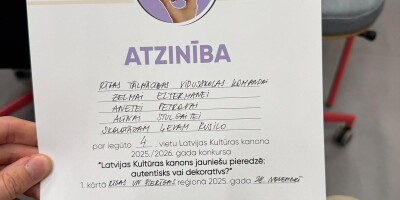 ATZINĪBA
RĪGAS TĀLMĀCĪBAS VIDUSSKOLAS KOMANDAI
ZELMAI EŽTERMANEI
ANETEI PETROVAI
ALĪNAI STULGAITEI
SKOLOTĀJAM ĻEVAM RUSILO
par iegūto 4. vietu Latvijas Kultūras kanona
2025./2026. gada konkursa
"Latvijas Kultūras kanons jauniešu pieredzē:
autentisks vai dekoratīvs?"
1. kārtā RĪGAS UN PIERĪGAS reģionā 2025. gada 28. NOVEMBRĪ